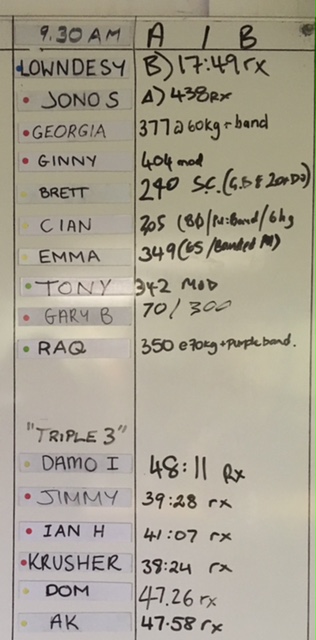 9.30 AM A / B
LOWNDESY B) 17:49 rx
JONO S A) 438 RX
GEORGIA 377 @ 60kg + band
GINNY 404 mod
BRETT 240 S.C.
CIAN 305 (80/M:Band/6kg
EMMA 349 (65/Banded M)
TONY 342 MOD
GARY B 70 / 300
RAQ 350 @ 70kg + Purple band.
"TRIPLE 3"
DAMO I 48:11 Rx
JIMMY 39:28 rx
IAN H 41:07 rx
KRUSHER 38:24 rx
DOM 47.26 rx
AK 47.58 rx